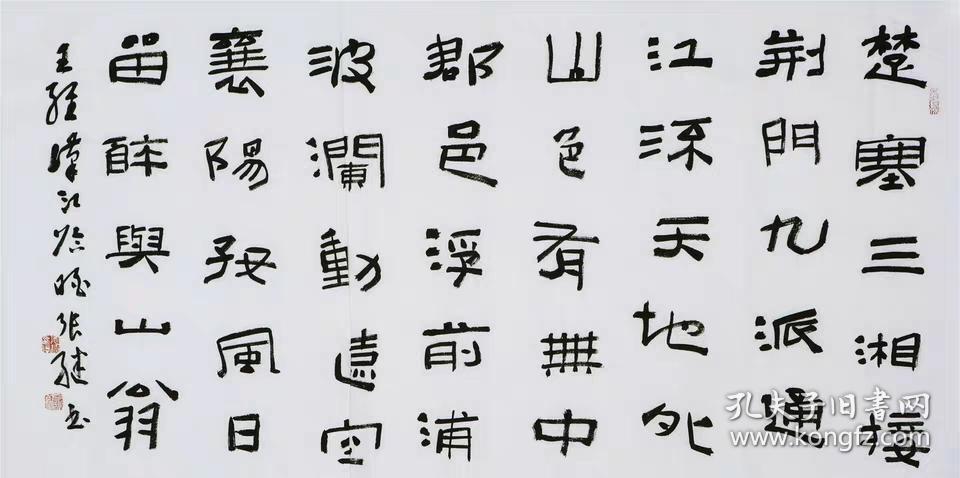 楚塞三湘接
荆門九派通
江流天地外
山色有無中
郡邑浮前浦
波瀾動遠空
襄陽好風日
留酔與山翁
王維漢江临眺張继书
孔夫子旧书网
www.kongfz.com